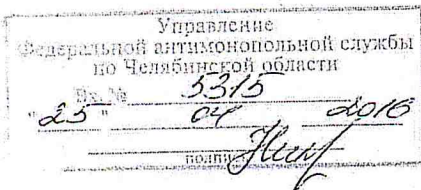 Управление
Федеральной антимонопольной службы
по Челябинской области
Вх.№ 5315
"25" 04 2016
подпись